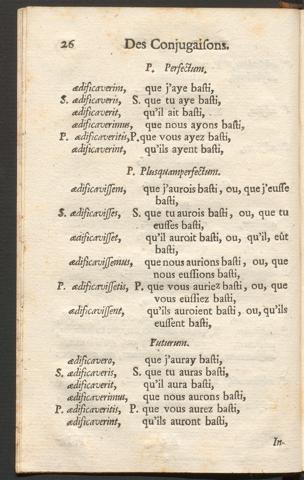 26 Des Conjugaiſons.
P. Perfectum.
ædificaverim, que j'aye baſti,
S. ædificaveris, S. que tu aye baſti,
ædificaverit, qu'il ait baſti,
ædificaverimus, que nous ayons baſti,
P. ædificaveritis, P. que vous ayez baſti,
ædificaverint, qu'ils ayent baſti,
P. Plusquamperfectum.
ædificaviſſem, que j'aurois baſti, ou, que j'euſſe
baſti,
S. ædificaviſſes, S. que tu aurois baſti, ou, que tu
euſſes baſti,
ædificaviſſet, qu'il auroit baſti, ou, qu'il, eût
baſti,
ædificaviſſemus, que nous aurions baſti, ou, que
nous euſſions baſti,
P. ædificaviſſetis, P. que vous auriez baſti, ou, que
vous euſſiez baſti,
ædificaviſſent, qu'ils auroient baſti, ou, qu'ils
euſſent baſti,
Futurum.
ædificavero, que j'auray baſti,
S. ædificaveris, S. que tu auras baſti,
ædificaverit, qu'il aura baſti,
ædificaverimus, que nous aurons baſti,
P. ædificaveritis, P. que vous aurez baſti,
ædificaverint, qu'ils auront baſti,
In-